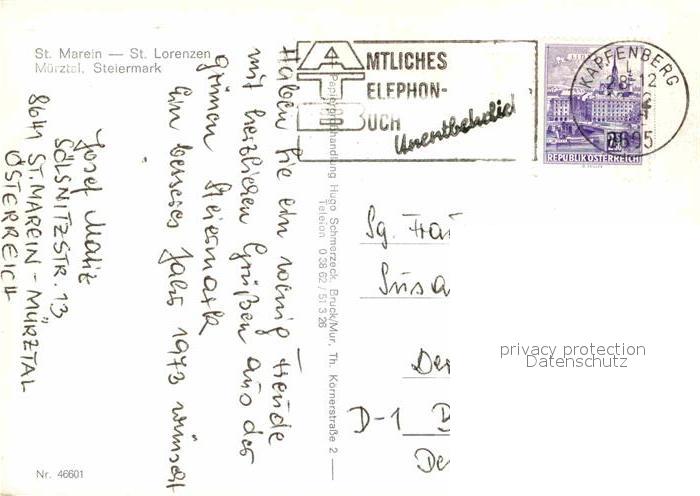 St. Marein — St. Lorenzen
Mürztal, Steiermark
AMTLICHES
TELEPHON-
BUCH
Unentbehrlich
KAPFENBERG
28. 12
8605
REPUBLIK ÖSTERREICH
Haben Sie ein wenig Freude
mit herzlichen Grüßen aus der
grünen Steiermark
Ein besseres Jahr 1973 wünscht
Josef
SÖLSNITZSTR. 13
8641 ST. MAREIN - MÜRZTAL
ÖSTERREICH
Papiergroßhandlung Hugo Schmerzeck, Bruck/Mur, Th. Körnerstraße 2 —
Telefon 0 38 62 / 51 3 26
Sg. Frau
Susa
Der
D-1 B
De
privacy protection
Datenschutz
Nr. 46601